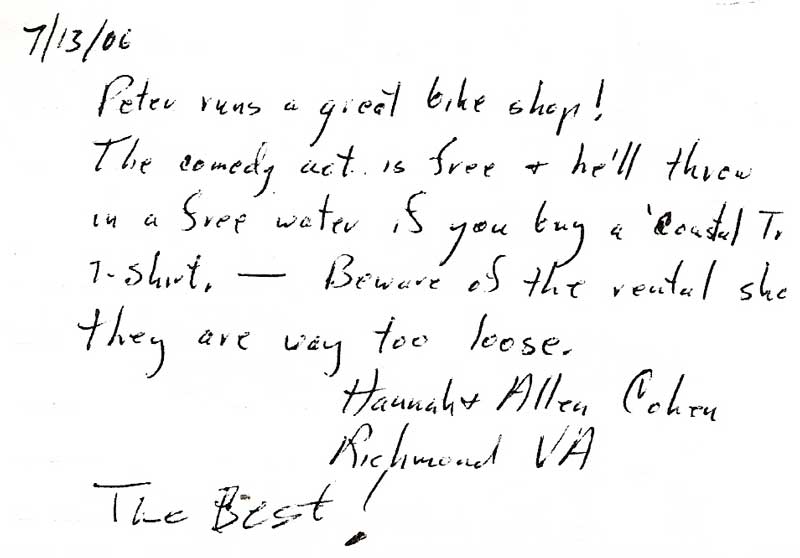 7/13/06
Peter runs a great bike shop!
The comedy act is free + he'll throw
in a free water if you buy a 'Coastal Tr
T-shirt. — Beware of the rental sho
they are way too loose.
Hannah + Allen Cohen
Richmond VA
The Best!